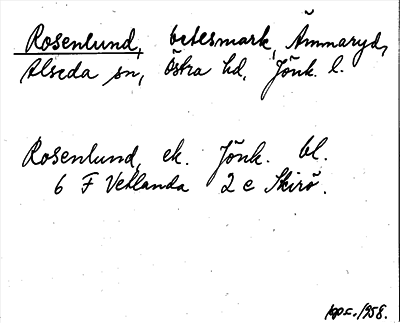 Rosenlund, betesmark, Ämmaryd,
Alseda sn, Östra hd, Jönk. l.
Rosenlund, ek. Jönk. bl.
6 F Vetlanda 2 e Skirö.
1958.